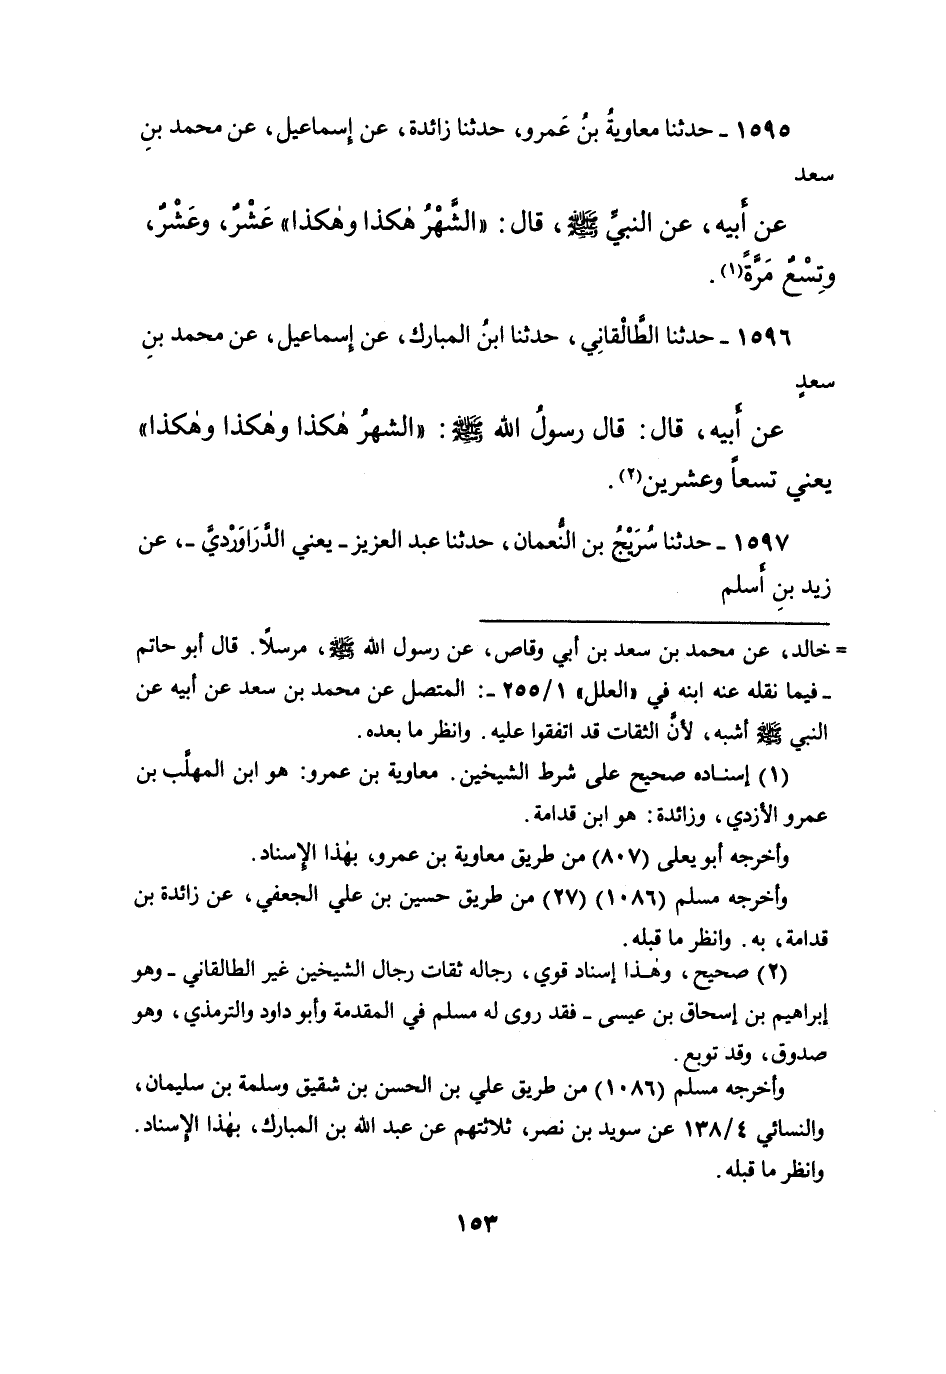 ١٥٩٥ ـ حدثنا معاويةُ بنُ عَمرو، حدثنا زائدة، عن إسماعيل، عن محمد بنِ
سعد
عن أَبيه، عن النبيِّ ﷺ، قال: «الشَّهْرُ هٰكذا وهٰكذا» عَشْرٌ، وعَشْرٌ،
وتِسْعٌ مَرَّةً(١).
١٥٩٦ ـ حدثنا الطَّالْقانِي، حدثنا ابنُ المبارك، عن إسماعيل، عن محمد بنِ
سعدٍ
عن أَبيه، قال: قال رسولُ الله ﷺ: «الشهرُ هٰكذا وهٰكذا وهٰكذا»
يعني تسعاً وعشرين(٢).
١٥٩٧ ـ حدثنا سُرَيْجُ بن النُّعمان، حدثنا عبد العزيز ـ يعني الدَّرَاوَرْديَّ ـ، عن
زيد بنِ أَسلم
= خالد، عن محمد بن سعد بن أبي وقاص، عن رسول الله ﷺ، مرسلًا. قال أبو حاتم
ـ فيما نقله عنه ابنه في «العلل» ٢٥٥/١ ـ: المتصل عن محمد بن سعد عن أبيه عن
النبي ﷺ أشبه، لأنَّ الثقات قد اتفقوا عليه. وانظر ما بعده.
(١) إسناده صحيح على شرط الشيخين. معاوية بن عمرو: هو ابن المهلَّب بن
عمرو الأزدي، وزائدة: هو ابن قدامة.
وأخرجه أبو يعلى (٨٠٧) من طريق معاوية بن عمرو، بهٰذا الإِسناد.
وأخرجه مسلم (١٠٨٦) (٢٧) من طريق حسين بن علي الجعفي، عن زائدة بن
قدامة، به. وانظر ما قبله.
(٢) صحيح، وهٰذا إسناد قوي، رجاله ثقات رجال الشيخين غير الطالقاني ـ وهو
إبراهيم بن إسحاق بن عيسى ـ فقد روى له مسلم في المقدمة وأبو داود والترمذي، وهو
صدوق، وقد توبع.
وأخرجه مسلم (١٠٨٦) من طريق علي بن الحسن بن شقيق وسلمة بن سليمان،
والنسائي ١٣٨/٤ عن سويد بن نصر، ثلاثتهم عن عبد الله بن المبارك، بهٰذا الإِسناد.
وانظر ما قبله.
١٥٣